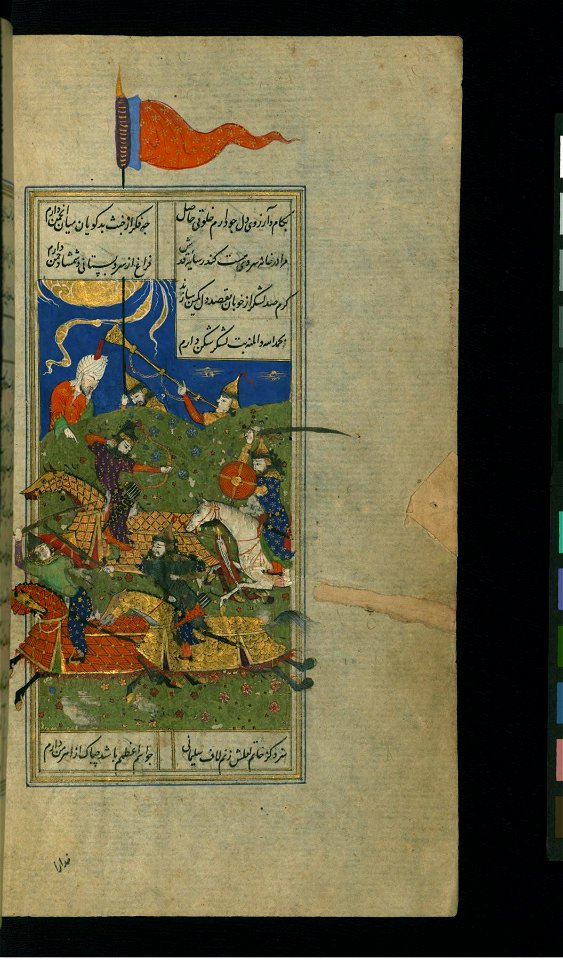 بکام و آرزوی دل چو دارم خلوتی حاصل
چه فکر از خبث بدکویان میان انجمن دارم
مرا در خانه سروی هست کندر سایه قدش
فراغ از سرو بستانی و شمشاد چمن دارم
کرم صد لشکر از خوبان بقصد دل کمین سازند
بحمد الله والمنه بت لشکر شکن دارم
سزد کز خاتم لعلش زنم لاف سلیمانی
چو اسم اعظمم باشد چه باک از اهرمن دارم
خدارا